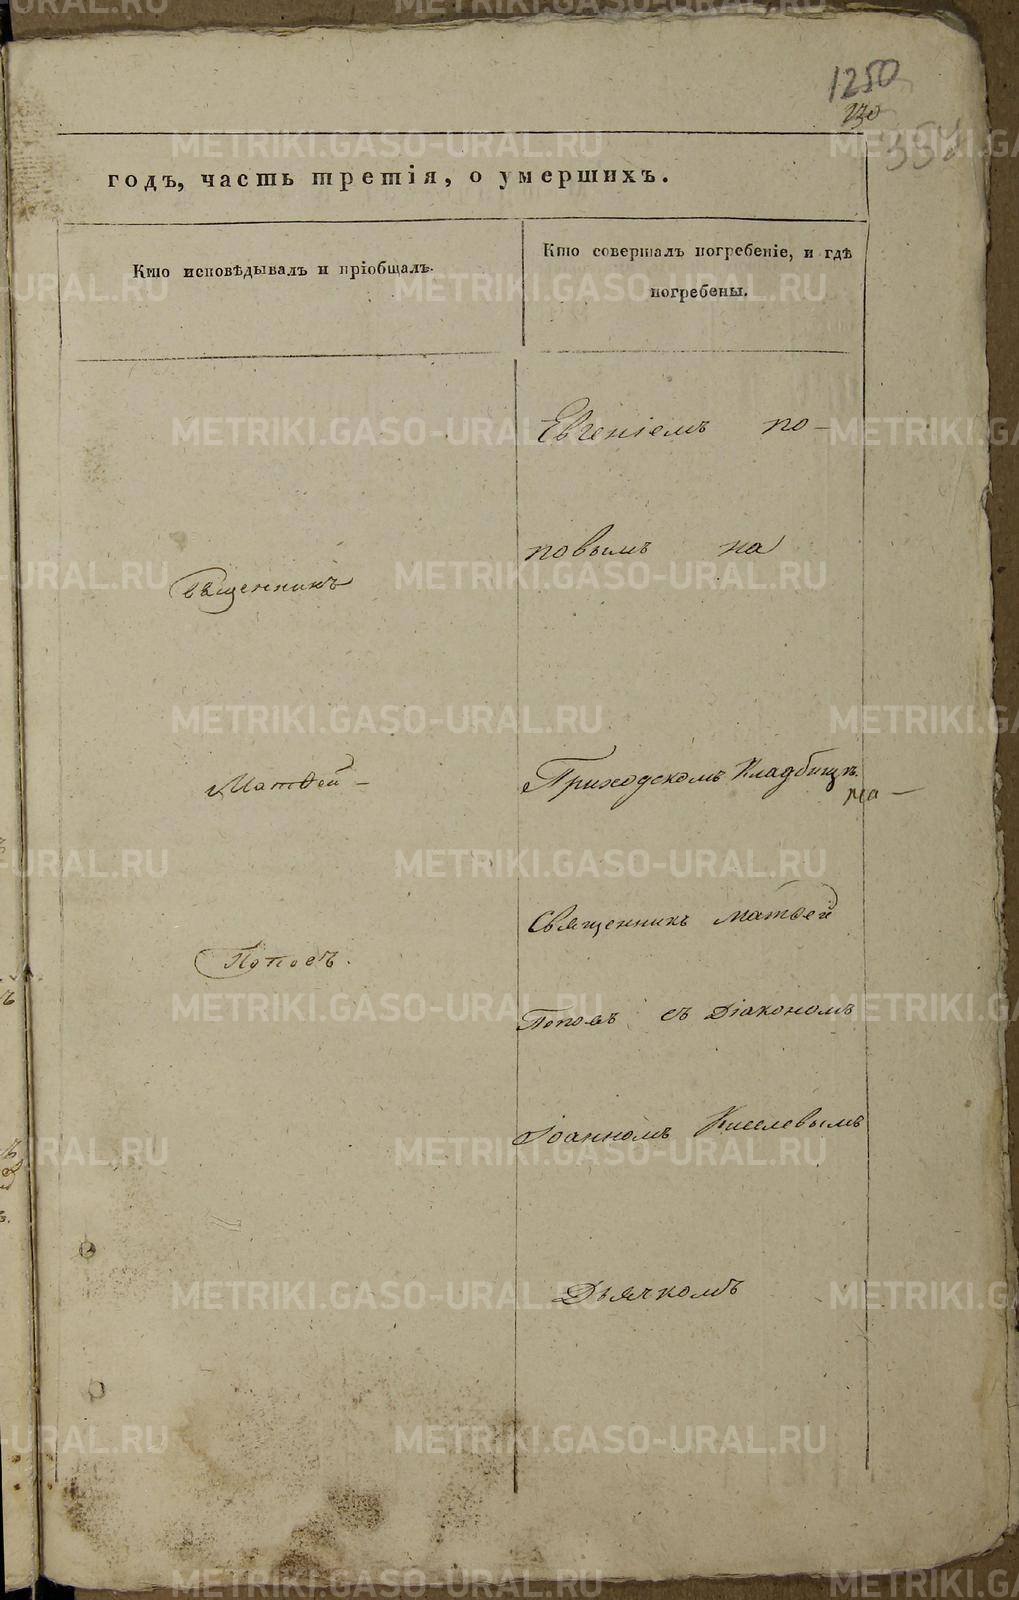 1250
годъ, часть третія, о умершихъ.
Кто исповѣдывалъ и пріобщалъ.
Кто совершалъ погребеніе, и гдѣ
погребены.
Священникъ
Матѳей
Поповъ.
Евгеніемъ по-
повымъ на
Приходскомъ Кладбищѣ.
Священникъ Матѳей
Поповъ съ Діакономъ
Іоанномъ Киселевымъ
Дьячкомъ
METRIKI.GASO-URAL.RU